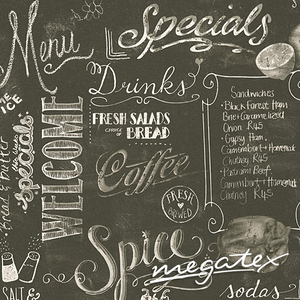 Menu
Specials
Drinks
FRESH SALADS
CHOICE OF
BREAD
Coffee
FRESH
BREWED
Spice
megatex
sodas
WELCOME
Specials
Bread & Butter
ICE
SALT &
Sandwiches
• Black Forest Ham
Brie & Caramelized
Onion R45
• Gypsy Ham,
Camembert & Homemade
Chutney R45
• Pastrami Beef,
Camembert & Homemade
Chutney R45